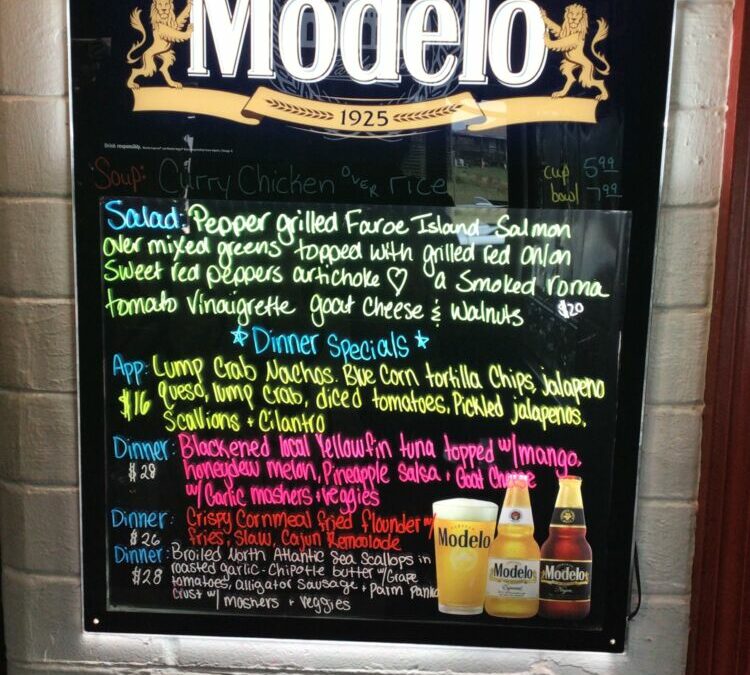 Modelo
1925
Drink responsibly.
Soup: Curry Chicken OVER rice cup 5.99
bowl 7.99
Salad: Pepper grilled Faroe Island Salmon
over mixed greens topped with grilled red onion
Sweet red peppers artichoke ♡ a Smoked roma
tomato Vinaigrette goat cheese & Walnuts $20
* Dinner Specials *
App: Lump Crab Nachos. Blue Corn tortilla Chips, jalapeno
$16 queso, lump crab, diced tomatoes, Pickled jalapenos,
Scallions + Cilantro
Dinner: Blackened local Yellowfin tuna topped w/mango,
$28 honeydew melon, Pineapple Salsa + Goat Cheese
w/Garlic mashers + veggies
Dinner: Crispy Cornmeal fried flounder w/
$26 fries, Slaw, Cajun Remoolade
Dinner: Broiled North Atlantic Sea Scallops in
$28 roasted garlic-Chipotle butter w/Grape
tomatoes, alligator Sausage + Parm Panko
Crust w/ mashers + veggies
Modelo
Modelo
Especial
Modelo
Negra